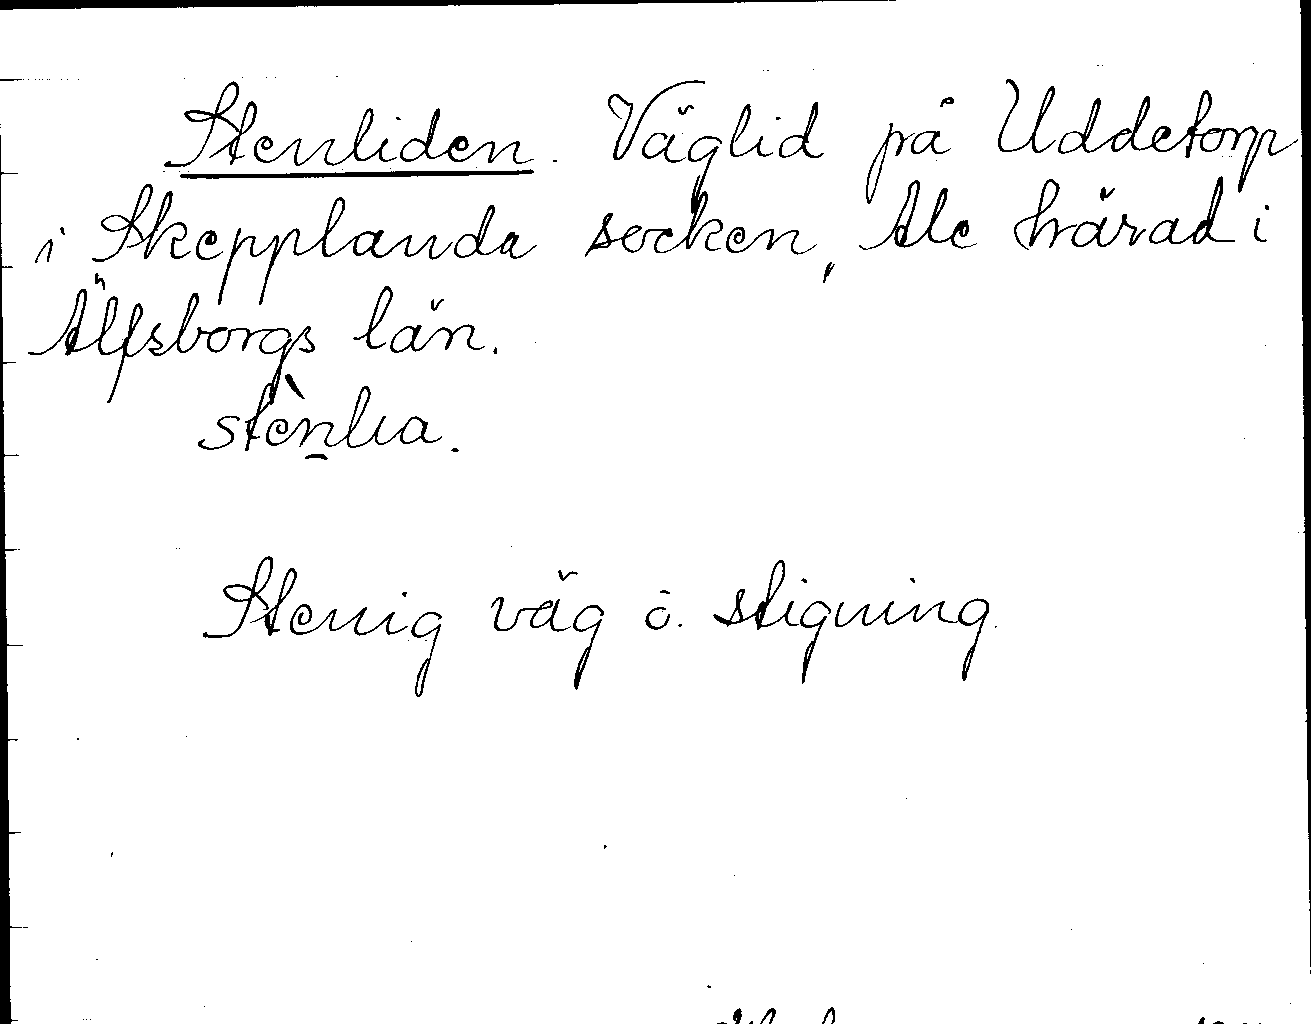 Stenliden. Väglid på Uddetorp
i Skepplanda socken, Ale härad i
Älfsborgs län.
stènlia.
Stenig väg o. stigning